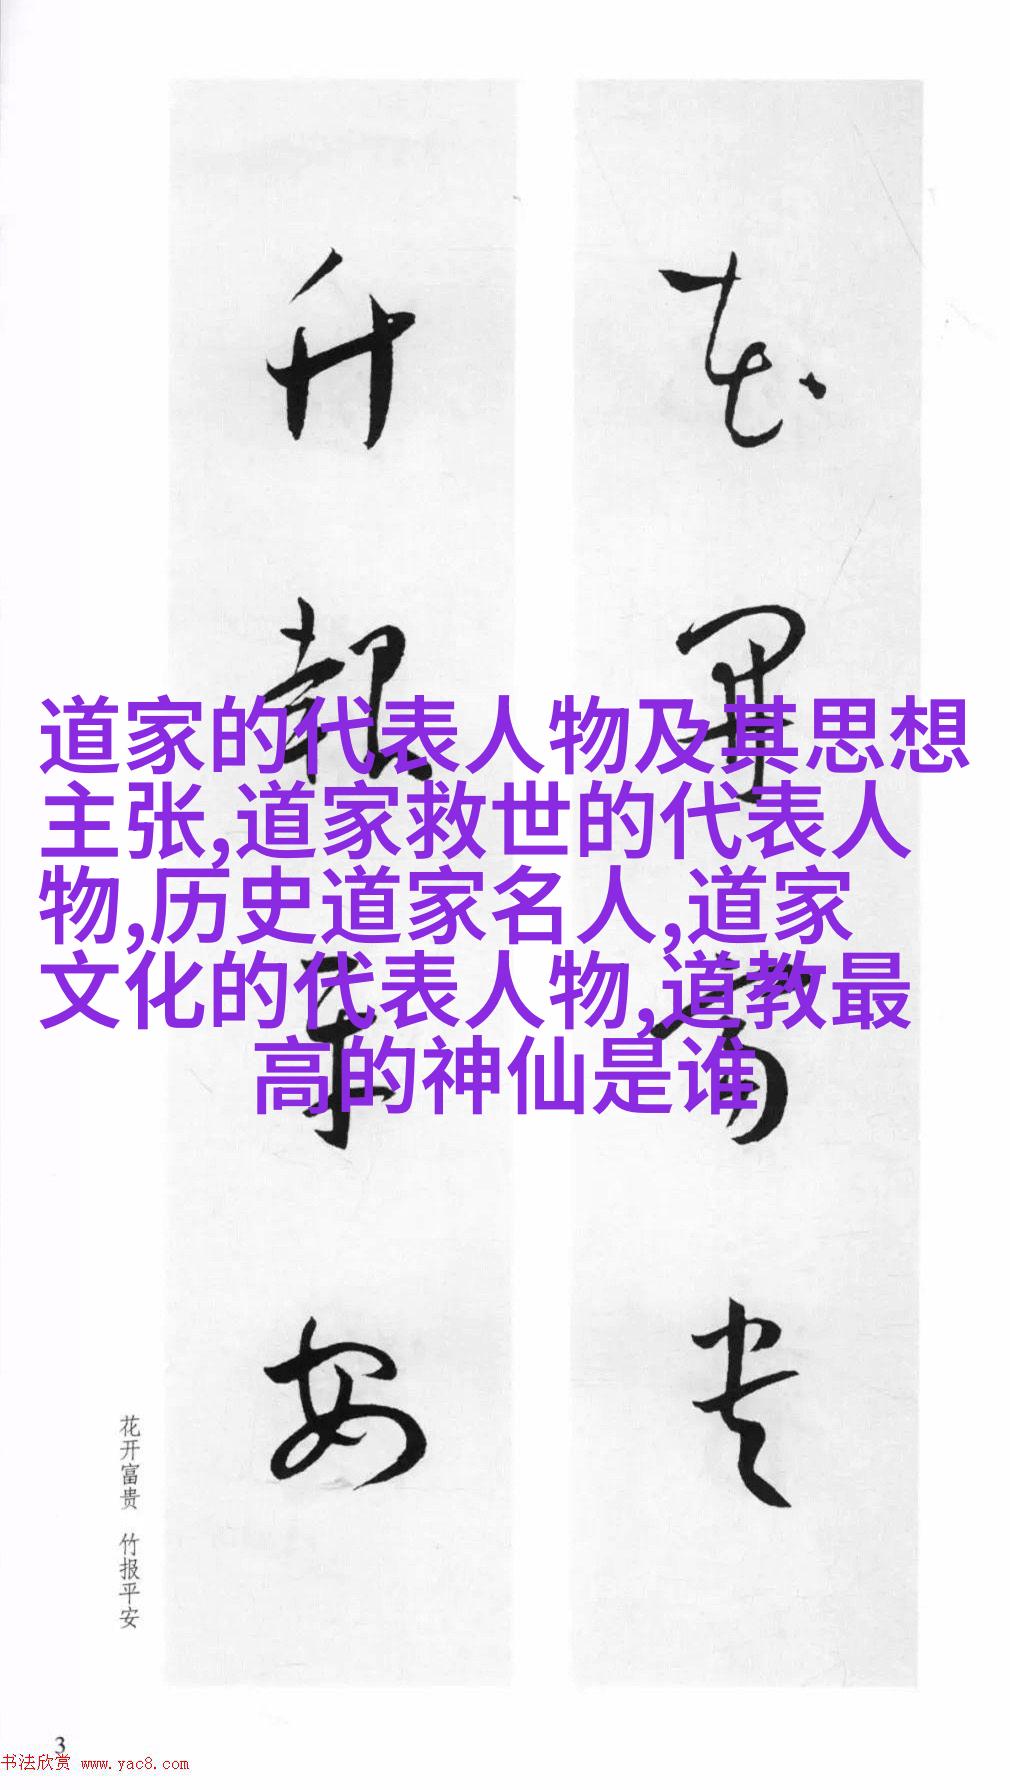 花开富贵
竹报平安
道家的代表人物及其思想
主张,道家救世的代表人
物,历史道家名人,道家
文化的代表人物,道教最
高的神仙是谁
花开富贵 竹报平安
3
书法欣赏 www.yac8.com